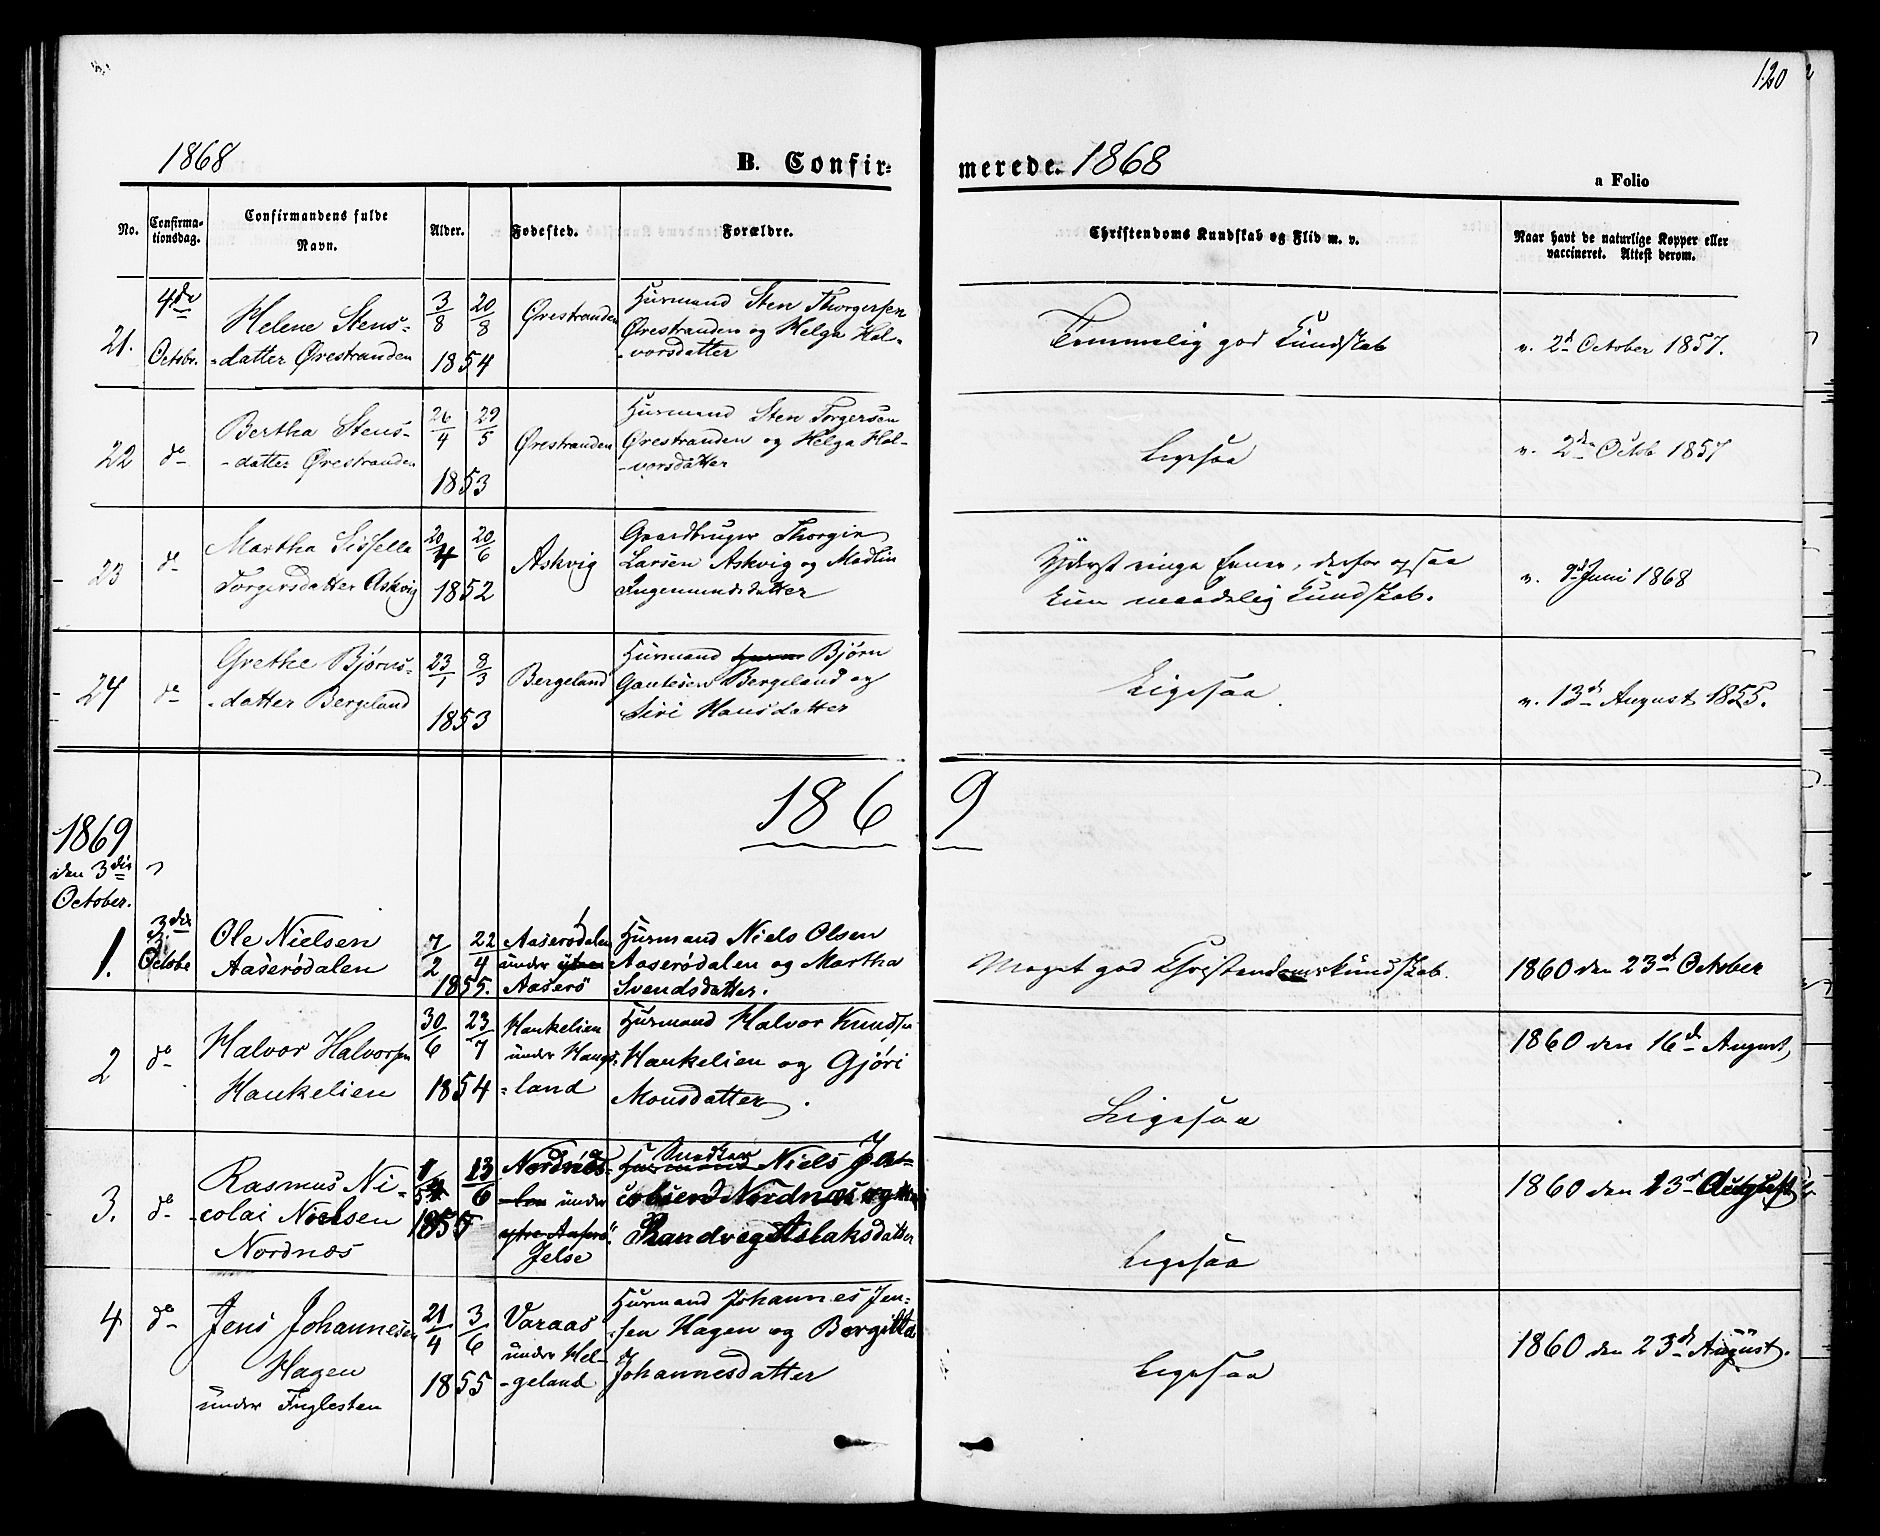 120
1868
B. Confir-
merede. 1868
a Folio
No.
Confirma-
tionsdag.
Confirmandens fulde
Navn.
Alder.
Fødested.
Forældre.
Christendoms Kundskab og Flid m. v.
Naar havt de naturlige Kopper eller
vaccineret. Attest derom.
21.
4de
Octobr.
Helene Stens-
-datter Ørestranden
3/8 20/8
1854
Ørestranden
Huusmand Sten Thorgersen
Ørestranden og Helga Hal-
-vorsdatter
Temmelig god Kundskab
v. 2d October 1857.
22
do
Bertha Stens-
-datter Ørestranden
26/4 29/5
1853
Ørestranden
Huusmand Sten Torgersen
Ørestranden og Helga Hal-
-vorsdatter
Ligesaa
v. 2den Octob 1857
23
do
Martha Sissella
Torgersdatter Askvig
20/4 20/6
1852
Askvig
Gaardbruger Thorgir
Larsen Askvig og Madlin
Ingemundsdatter
Yderst ringe Evner, derfor ogsaa
kun maadelig Kundskab.
v. Juni 1868
24
do
Grethe Bjørns-
-datter Bergeland
23/1 8/3
1853
Bergeland
Huusmand Bjørn
Gautesen Bergeland og
Siri Hansdatter
Ligesaa.
v. 13d August 1855.
1869
1869
den 3die
October.
1.
3die
Octobe
Ole Nielsen
Aaserødalen
7/2 22/4
1855.
Aaserødalen
under ytre
Aaserø
Huusmand Niels Olsen
Aaserødalen og Martha
Svendsdatter.
Meget god Christendomskundskab.
1860 den 23d October
2
do
Halvor Halvorsen
Haukelien
30/6 23/7
1854
Haukelien
under Haugs-
-land
Huusmand Halvor Knudsen
Haukelien og Gjøri
Monsdatter.
Ligesaa
1860 den 16d August,
3.
do
Rasmus Ni-
-colai Nielsen
Nordnæs
13/6
1855
Nordnæs
under
ytre Aaserø
Jelse
Snedker
Huusmand Niels Ja-
cobsen Nordnæs og
Randveg Aslaksdatter
Ligesaa
1860 den 23d August
4
do
Jens Johannesen
Hagen
under Fuglesten
21/4 3/6
1855
Varaas
under Hel-
-geland
Huusmand Johannes Jen-
-sen Hagen og Bergitta
Johannesdatter
Ligesaa
1860 den 23d August.